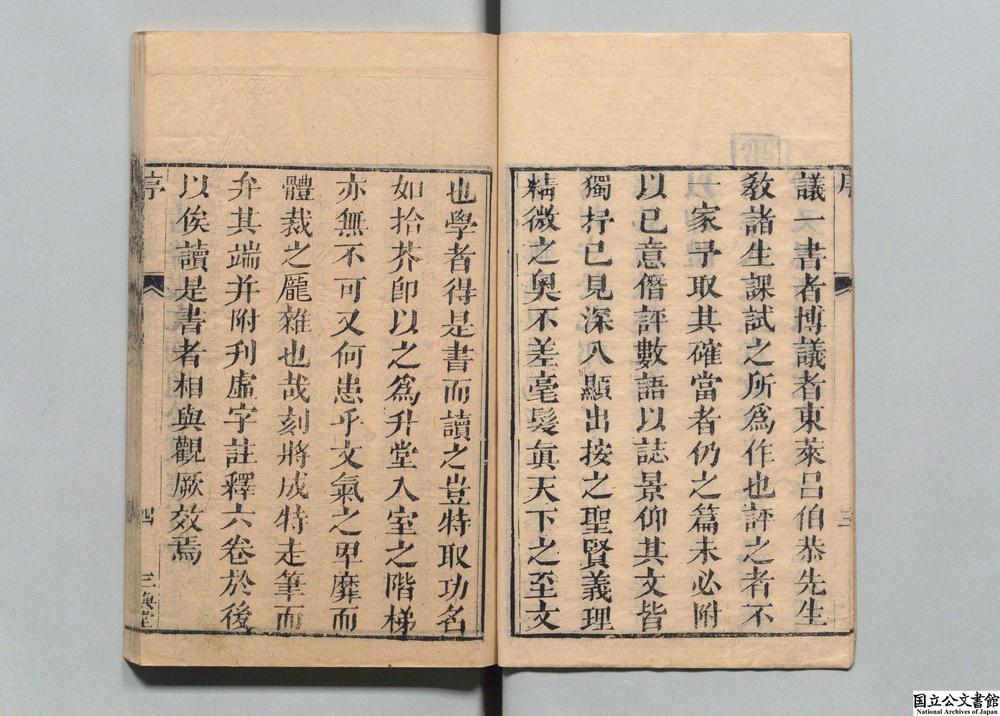 議一書者博議者東萊呂伯恭先生
敎諸生課試之所爲作也評之者不
一家予取其確當者仍之篇末必附
以已意僭評數語以誌景仰其文皆
獨抒已見深入顯出按之聖賢義理
精微之奧不差毫髮眞天下之至文
序
三
也學者得是書而讀之豈特取功名
如拾芥卽以之爲升堂入室之階梯
亦無不可又何患乎文氣之卑靡而
體裁之龐雜也哉刻將成特走筆而
弁其端并附刊虛字註釋六卷於後
以俟讀是書者相與觀厥效焉
序
四
三奐堂
国立公文書館
National Archives of Japan